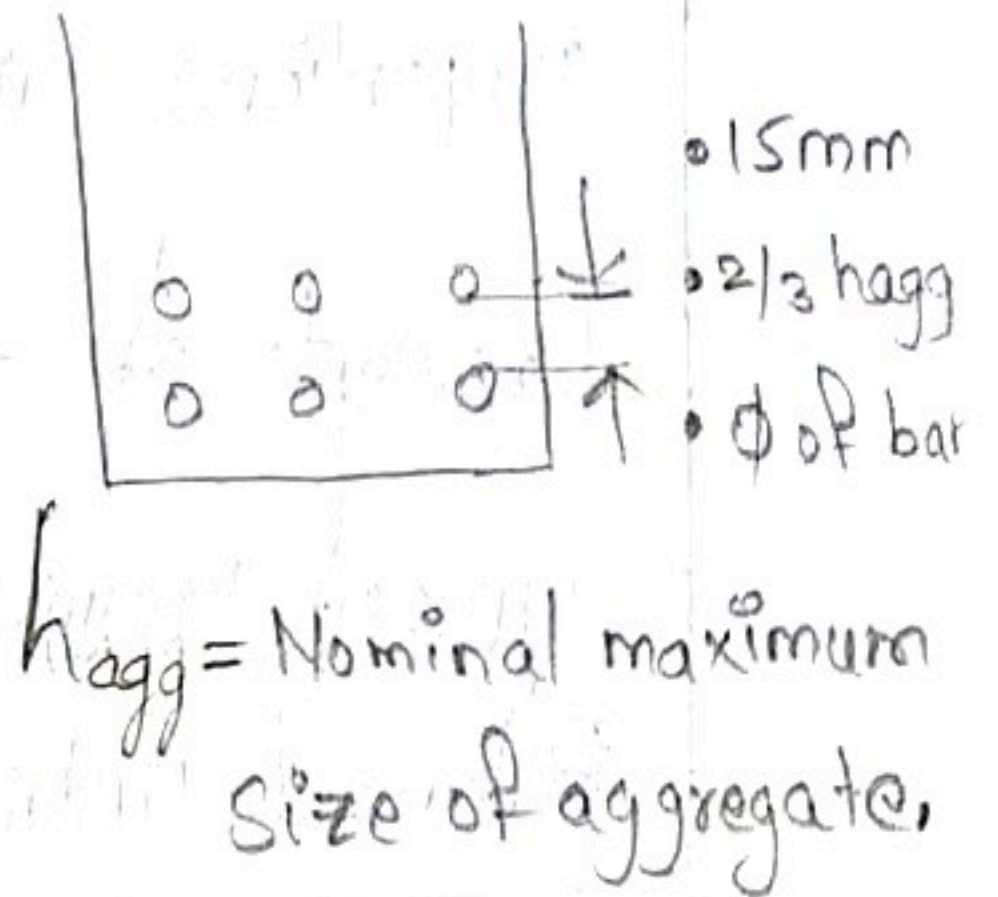 • 15mm
• 2/3 hagg
• ϕ of bar
hagg = Nominal maximum
size of aggregate.